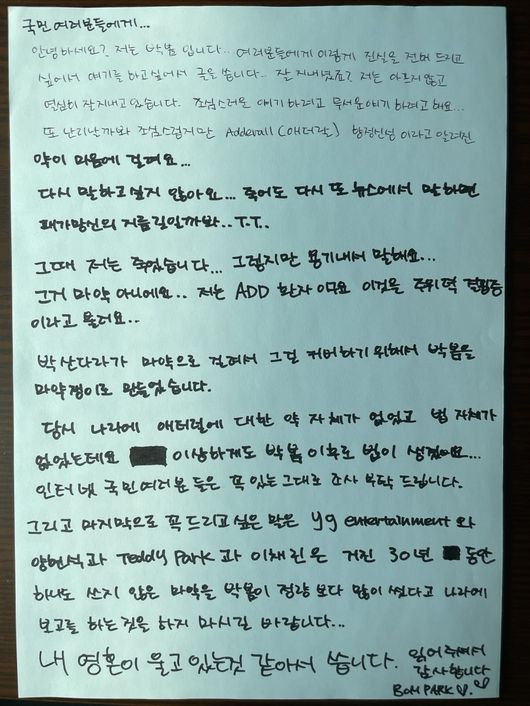 국민 여러분들에게...
안녕하세요? 저는 박봄 입니다... 여러분들에게 이렇게 진실을 전해 드리고
싶어서 얘기를 하고싶어서 글을 씁니다.. 잘 지내셨죠? 저는 아프지 않고
열심히 잘지내고 있습니다. 조심스러운 얘기 하려고 무서운 얘기 하려고 해요...
또 난리난까봐 조심스럽지만 Adderall (애더랄) 향정신성 이라고 알려진
약이 마음에 걸려요...
다시 말하고싶지 않아요... 죽어도 다시 또 뉴스에서 말하면
패가망신의 지름길일까봐.. T.T..
그때 저는 죽었습니다... 그렇지만 용기내서 말해요...
그거 마약 아니에요.. 저는 ADD 환자 이구요 이것을 주위력 결핍증
이라고 불러요..
박산다라가 마약으로 걸려서 그걸 커버하기 위해서 박봄을
마약쟁이로 만들었습니다.
당시 나라에 애터럴에 대한 약 자체가 없었고 법 자체가
없었는데요 이상하게도 박봄 이후로 법이 생겼어요...
인터넷 국민여러분 들은 꼭 있는그대로 조사 부탁 드립니다.
그리고 마지막으로 꼭 드리고 싶은 말은 yg entertainment 와
양현석과 Teddy Park 과 이채린은 거진 30년 동안
하나도 쓰지 않은 마약을 박봄이 정량 보다 많이 썼다고 나라에
보고를 하는것을 하지 마시길 바랍니다...
내 영혼이 울고 있는것 같아서 씁니다. 읽어주셔서
감사합니다
BOM PARK ♡.